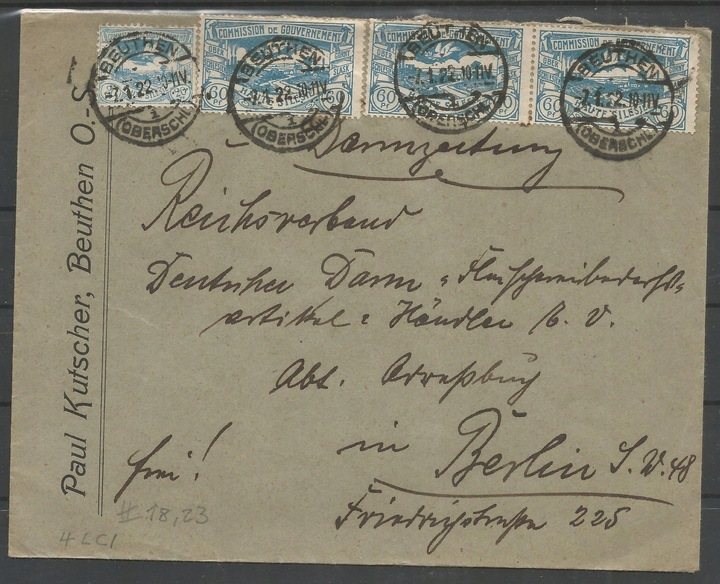 COMMISSION DE GOUVERNEMENT
HAUTE SILESIE
60 PF 60
BEUTHEN
-7.1.22.10-11V.
1
(OBERSCHL.)
BEUTHEN
-7.1.22.10-11V.
1
(OBERSCHL.)
BEUTHEN
-7.1.22.10-11V.
1
(OBERSCHL.)
BEUTHEN
-7.1.22.10-11V.
(OBERSCHL.)
Paul Kutscher, Beuthen O.-S.
Darmzeitung
Reichsverband
Deutscher Darm- Fleischereibedarfs-
artikel-Händler E. V.
Abt. Adreßbuch
in Berlin S.W. 48
Friedrichstraße 225
frei!
#18,23
4LC1